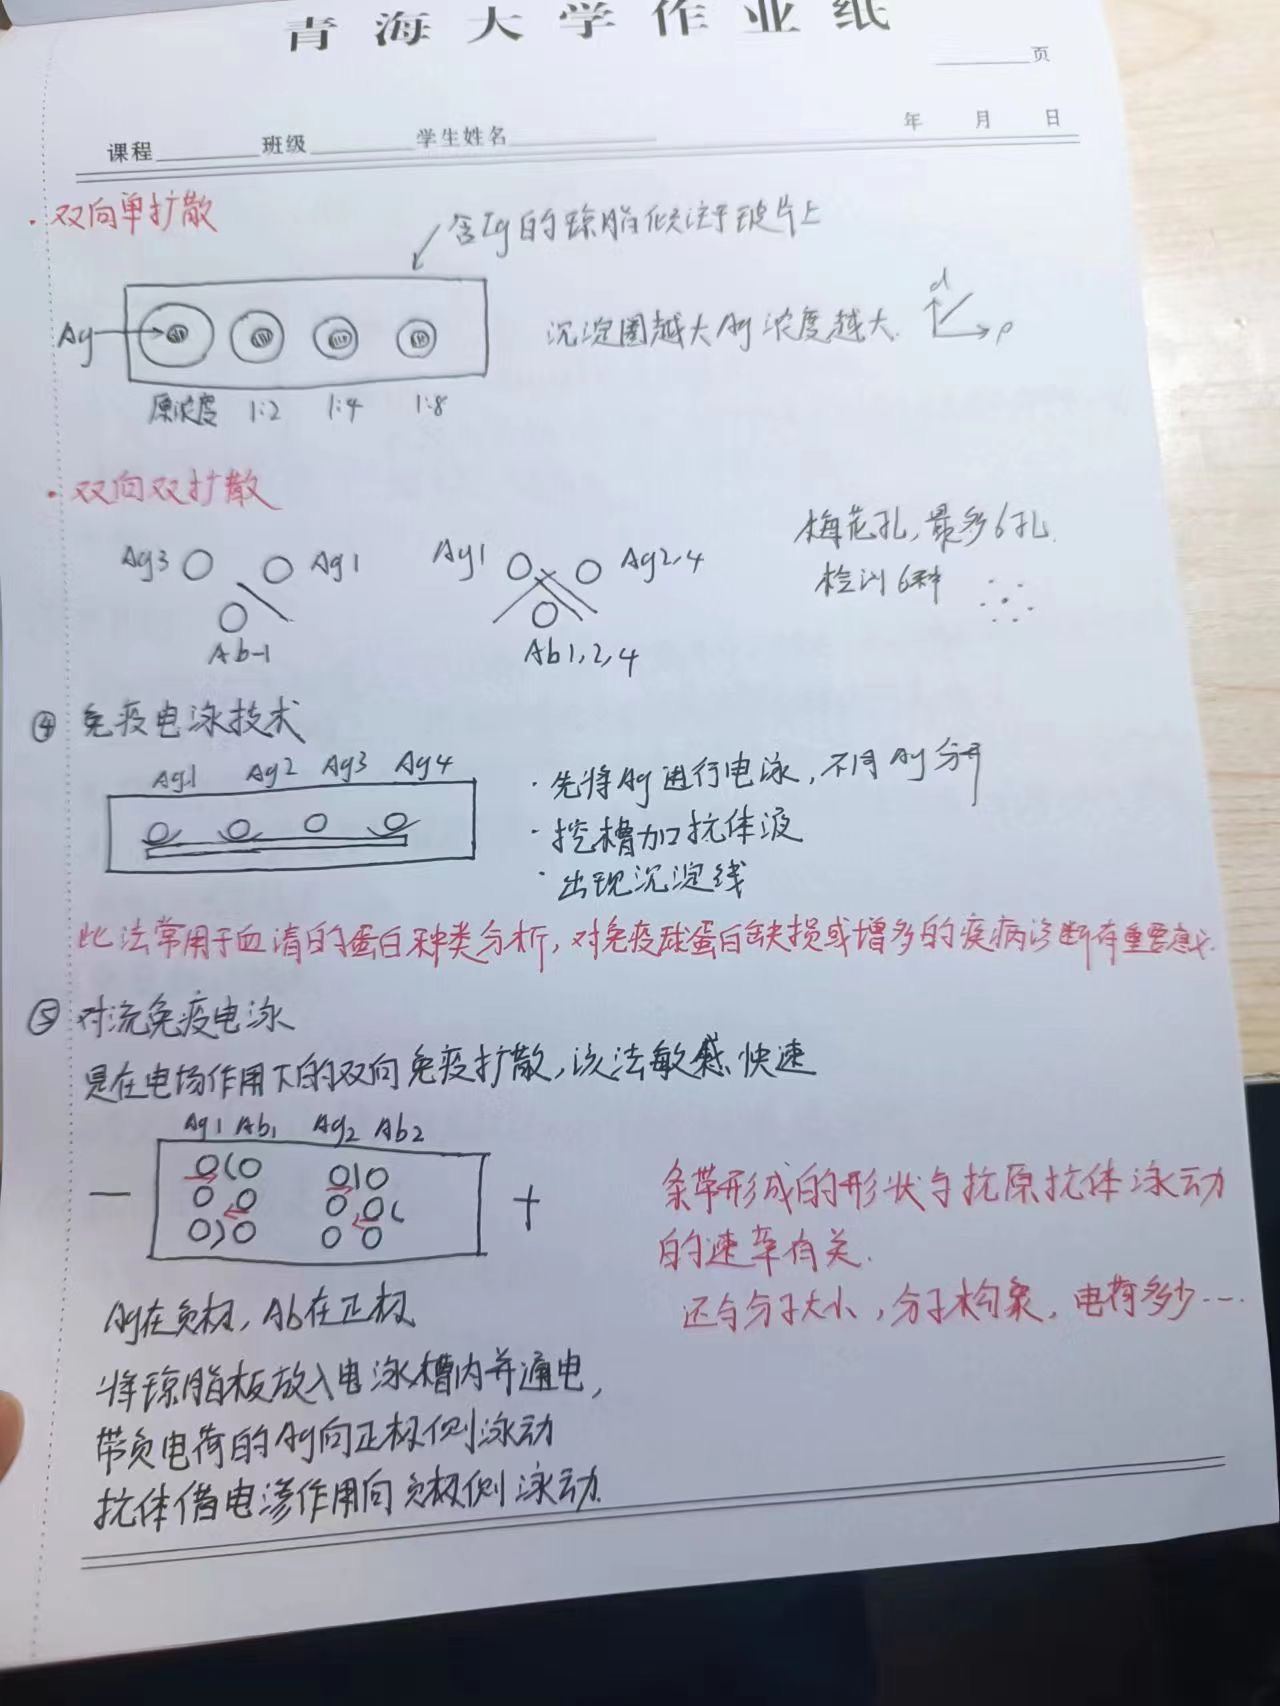 青海大学作业纸
页
课程 班级 学生姓名 年 月 日
·双向单扩散
含Ig的琼脂倾注于玻片上
Ag
沉淀圈越大Ag浓度越大.
d
ρ
原浓度 1:2 1:4 1:8
·双向双扩散
Ag3 Ag1 Ag1 Ag2,4
梅花孔,最多6孔.
检测6种
Ab-1 Ab1,2,4
④ 免疫电泳技术
Ag1 Ag2 Ag3 Ag4
·先将Ag进行电泳,不同Ag分开
·挖槽加抗体液
·出现沉淀线
此法常用于血清的蛋白种类分析,对免疫球蛋白缺损或增多的疾病诊断有重要意义.
⑤ 对流免疫电泳
是在电场作用下的双向免疫扩散,该法敏感、快速
Ag1 Ab1 Ag2 Ab2
— +
条带形成的形状与抗原抗体泳动
的速率有关.
还与分子大小,分子构象,电荷多少……
Ag在负极,Ab在正极
将琼脂板放入电泳槽内并通电,
带负电荷的Ag向正极侧泳动
抗体借电渗作用向负极侧泳动.